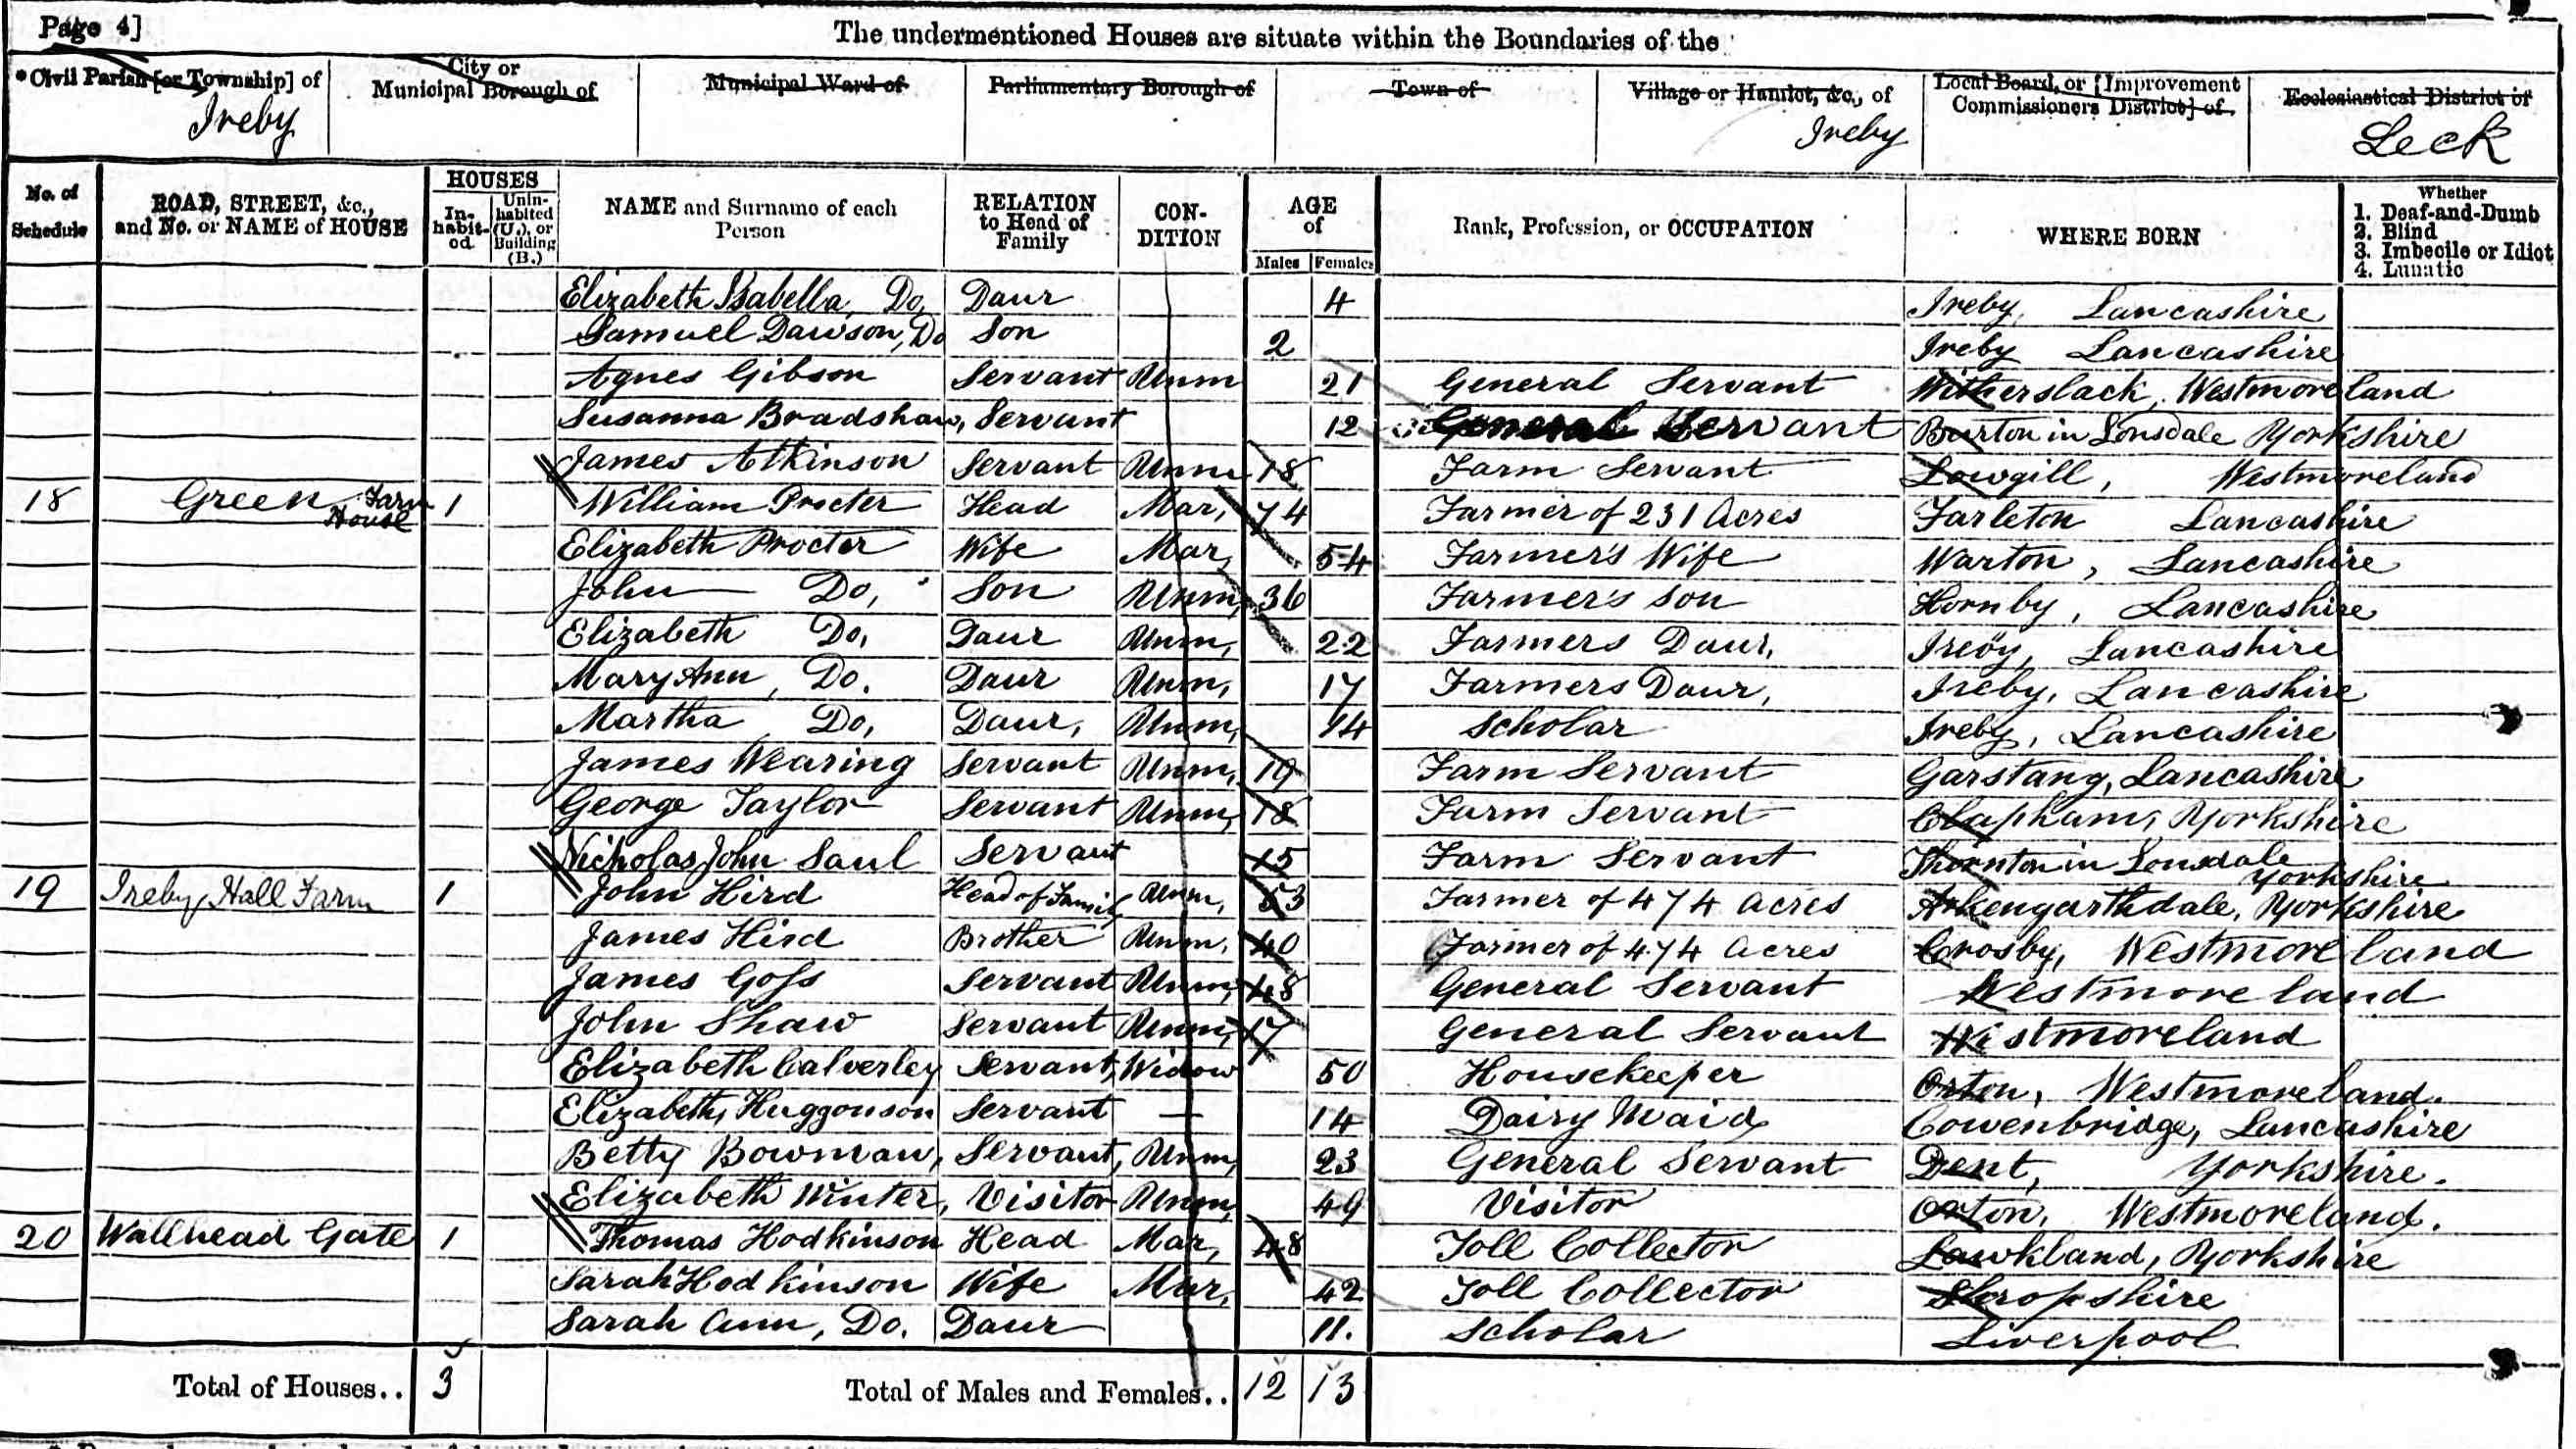 Page 4]
The undermentioned Houses are situate within the Boundaries of the
*Civil Parish [or Township] of
Ireby
City or
Municipal Borough of
Municipal Ward of
Parliamentary Borough of
Town of
Village or Hamlet, &c., of
Ireby
Local Board, or [Improvement
Commissioners District] of
Ecclesiastical District of
Leck
No. of
Schedule
ROAD, STREET, &c.,
and No. or NAME of HOUSE
HOUSES
In-
habit-
ed
Unin-
habited
(U.), or
Building
(B.)
NAME and Surname of each
Person
RELATION
to Head of
Family
CON-
DITION
AGE
of
Males Females
Rank, Profession, or OCCUPATION
WHERE BORN
Whether
1. Deaf-and-Dumb
2. Blind
3. Imbecile or Idiot
4. Lunatic
Elizabeth Isabella, Do, Daur 4 Ireby, Lancashire
Samuel Dawson, Do Son 2 Ireby Lancashire
Agnes Gibson Servant Unm 21 General Servant Witherslack, Westmoreland
Susanna Bradshaw, Servant 12 General Servant Burton in Lonsdale Yorkshire
James Atkinson Servant Unm 18 Farm Servant Lowgill, Westmoreland
18 Green Farm House 1 William Procter Head Mar, 74 Farmer of 231 Acres Farleton Lancashire
Elizabeth Procter Wife Mar, 54 Farmer's Wife Warton, Lancashire
John Do, Son Unm, 36 Farmer's Son Hornby, Lancashire
Elizabeth Do, Daur Unm, 22 Farmers Daur, Ireby, Lancashire
Mary Ann, Do. Daur Unm, 17 Farmers Daur, Ireby, Lancashire
Martha Do, Daur, Unm, 14 Scholar Ireby, Lancashire
James Wearing Servant Unm, 19 Farm Servant Garstang, Lancashire
George Taylor Servant Unm, 18 Farm Servant Clapham, Yorkshire
Nicholas John Saul Servant 15 Farm Servant Thornton in Lonsdale Yorkshire
19 Ireby Hall Farm 1 John Hird Head of Family Unm, 53 Farmer of 474 Acres Arkengarthdale, Yorkshire
James Hird Brother Unm, 40 Farmer of 474 Acres Crosby, Westmoreland
James Goss Servant Unm, 48 General Servant Westmoreland
John Shaw Servant Unm, 17 General Servant Westmoreland
Elizabeth Calverley Servant, Widow 50 Housekeeper Orton, Westmoreland.
Elizabeth, Huggonson Servant — 14 Dairy Maid Cowenbridge, Lancashire
Betty Bowman, Servant, Unm, 23 General Servant Dent, Yorkshire.
Elizabeth Winter, Visitor Unm, 49 Visitor Orton, Westmoreland.
20 Wallhead Gate 1 Thomas Hodkinson Head Mar, 48 Toll Collector Lawkland, Yorkshire
Sarah Hodkinson Wife Mar, 42 Toll Collector Shropshire
Sarah Ann, Do. Daur 11. Scholar Liverpool
Total of Houses.. 3 Total of Males and Females.. 12 13